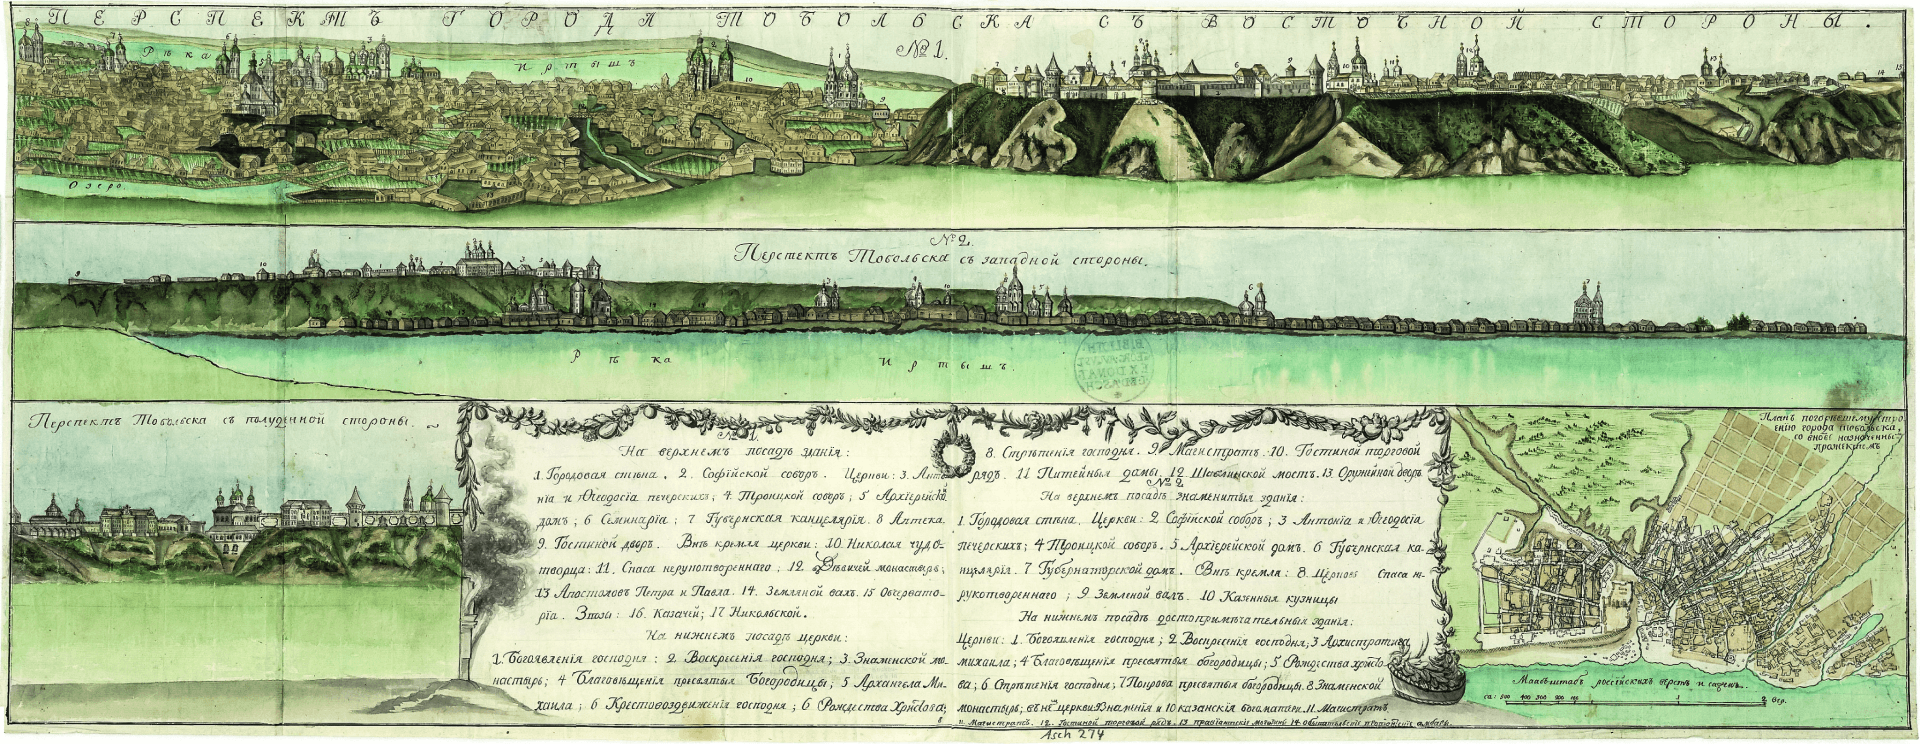 ПЕРСПЕКТЪ ГОРОДА ТОБОЛЬСКА СЪ ВОСТОЧНОЙ СТОРОНЫ.
№ 1.
Рѣка Иртышъ
Озеро
№ 2.
Перспектъ Тобольска съ западной стороны.
Рѣка Иртышъ.
Перспектъ Тобольска съ полуденной стороны.
№ 1.
На верхнемъ посадѣ зданія:
1. Городовая стѣна. 2. Софійской соборъ. Церкви: 3. Анто-
нія и Ѳеодосія печерскихъ; 4 Троицкой соборъ; 5 Архіерейской
домъ; 6 Семинарія; 7 Губернская канцелярія. 8 Аптека.
9. Гостиной дворъ. Внѣ кремля церкви: 10. Николая чудо-
творца: 11. Спаса нерукотвореннаго; 12. Дѣвичей монастырь;
13 Апостоловъ Петра и Павла. 14. Земляной валъ. 15 Обсервато-
рія. 16. Казачей; 17 Никольской.
На нижнемъ посадѣ церкви:
1. Богоявленія господня: 2 Воскресенія господня; 3. Знаменской мо-
настырь; 4 Благовѣщенія пресвятыя Богородицы; 5 Архангела Ми-
хаила; 6 Крестовоздвиженія господня; 6 Рождества Христова;
8. Стрѣтенія господня. 9. Магистратъ. 10. Гостиной торговой
рядъ. 11 Питейныя домы. 12 мостъ. 13 Оружейной дворъ.
№ 2
На верхнемъ посадѣ знаменитыя зданія:
1 Городовая стѣна. Церкви: 2 Софійской соборъ; 3 Антонія и Ѳеодосія
печерскихъ; 4 Троицкой соборъ. 5 Архіерейской домъ. 6 Губернская ка-
нцелярія. 7 Губернаторской домъ. Внѣ кремля: 8 Церковь Спаса не-
рукотвореннаго; 9 Земляной валъ. 10 Казенныя кузницы
На нижнемъ посадѣ достопримѣчательныя зданія:
Церкви: 1. Богоявленія господня; 2 Воскресенія господня; 3 Архистратига
михаила; 4 Благовѣщенія пресвятыя богородицы; 5 Рождества христо-
ва; 6 Стрѣтенія господня; 7 Покрова пресвятыя богородицы. 8 Знаменской
монастырь; въ немъ церкви 9 Знаменія и 10 казанскія богоматери. 11. Магистратъ.
11. Магистратъ. 12. Гостиной торговой рядъ. 13 провіантскіе магазины 14
Планъ погорѣвшему стро
енію города тобольска,
со вновь назначенны-
Маасштабъ россійскихъ верстъ и саженъ.
Asch 274